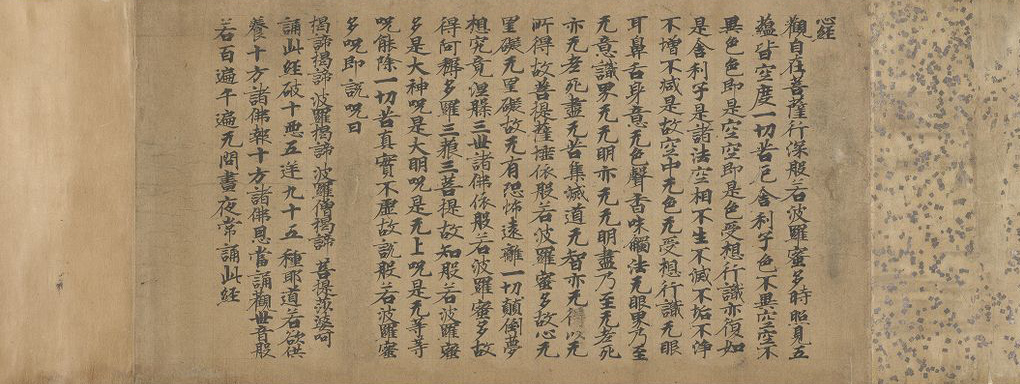 心經
觀自在菩薩行深般若波羅蜜多時照見五
蘊皆空度一切苦厄舍利子色不異空空不
異色色即是空空即是色受想行識亦復如
是舍利子是諸法空相不生不滅不垢不淨
不增不減是故空中无色无受想行識无眼
耳鼻舌身意无色聲香味觸法无眼界乃至
无意識界无无明亦无无明盡乃至无老死
亦无老死盡无苦集滅道无智亦无得以无
所得故菩提薩埵依般若波羅蜜多故心无
罣礙无罣礙故无有恐怖遠離一切顛倒夢
想究竟涅槃三世諸佛依般若波羅蜜多故
得阿耨多羅三藐三菩提故知般若波羅蜜
多是大神呪是大明呪是无上呪是无等等
呪能除一切苦真實不虛故說般若波羅蜜
多呪即說呪曰
揭諦揭諦 波羅揭諦 波羅僧揭諦 菩提莎婆呵
誦此經破十惡五逆九十五種耶道若欲供
養十方諸佛報十方諸佛恩當誦觀世音般
若百遍千遍无間晝夜常誦此經